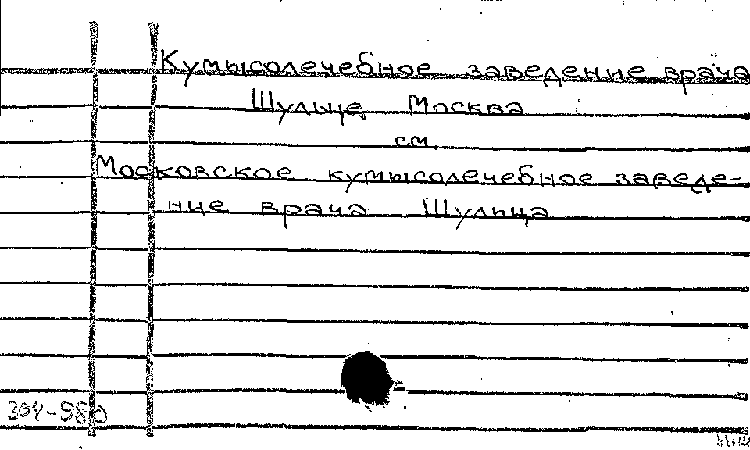 Кумысолечебное заведение врача
Шульце, Москва
см.
Московское кумысолечебное заведе-
ние врача Шульца
394-980